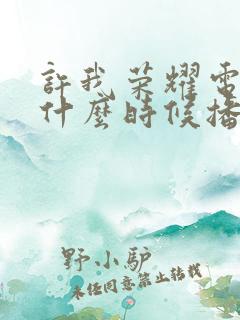 許我荣耀電
什麼時候播
野小驴
未径同意禁止转载